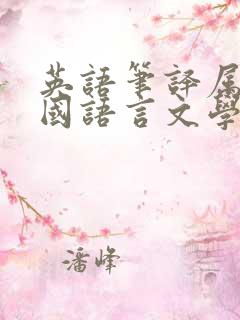 英語筆譯屬
國語言文學
潘峰